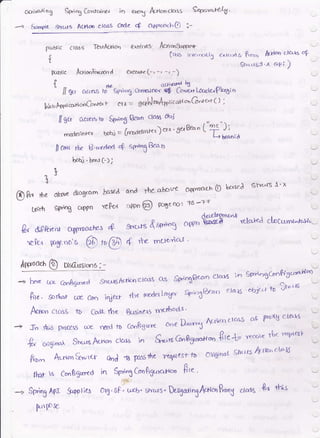 activating Spring Container in every Action class Seperately.
→ Sample struts Action class code of approach① :-
public class TestAction extends ActionSupport
{ (this internally extends from Action class of
struts 1.x api)
public ActionForward execute(-,-,-,-)
{ activated by
// get access to the Spring Container of ContextLoaderPlugin
WebApplicationContext ctx = getWebApplicationContext();
// get access to Spring Bean class obj
bobj = ctx.getBean("mc");
→ bean id
// call the B.methods of spring Bean
bobj.bm1(-);
}
}
For the above diagram based and the above approach① based struts 1.x
with spring appn refer appn page no: 76
for different approaches of struts & spring appn development related documents
refer page no's to 34 of the material.
Approach② Discussions:-
→ here we Configured Struts Action class as SpringBean class in Spring Configuration
file. so that we can inject the model layer SpringBean class object to Struts
Action class to call the Business methods.
→ In this process we need to configure one Dummy Action class as proxy class
for original Struts Action class in Struts Configuration file to receive the request
from Action Servlet and to pass the request to original Struts Action class
that is Configured in Spring Configuration file.
→ Spring API Supplies org.sf.web.struts.DelegatingActionProxy class for this
purpose